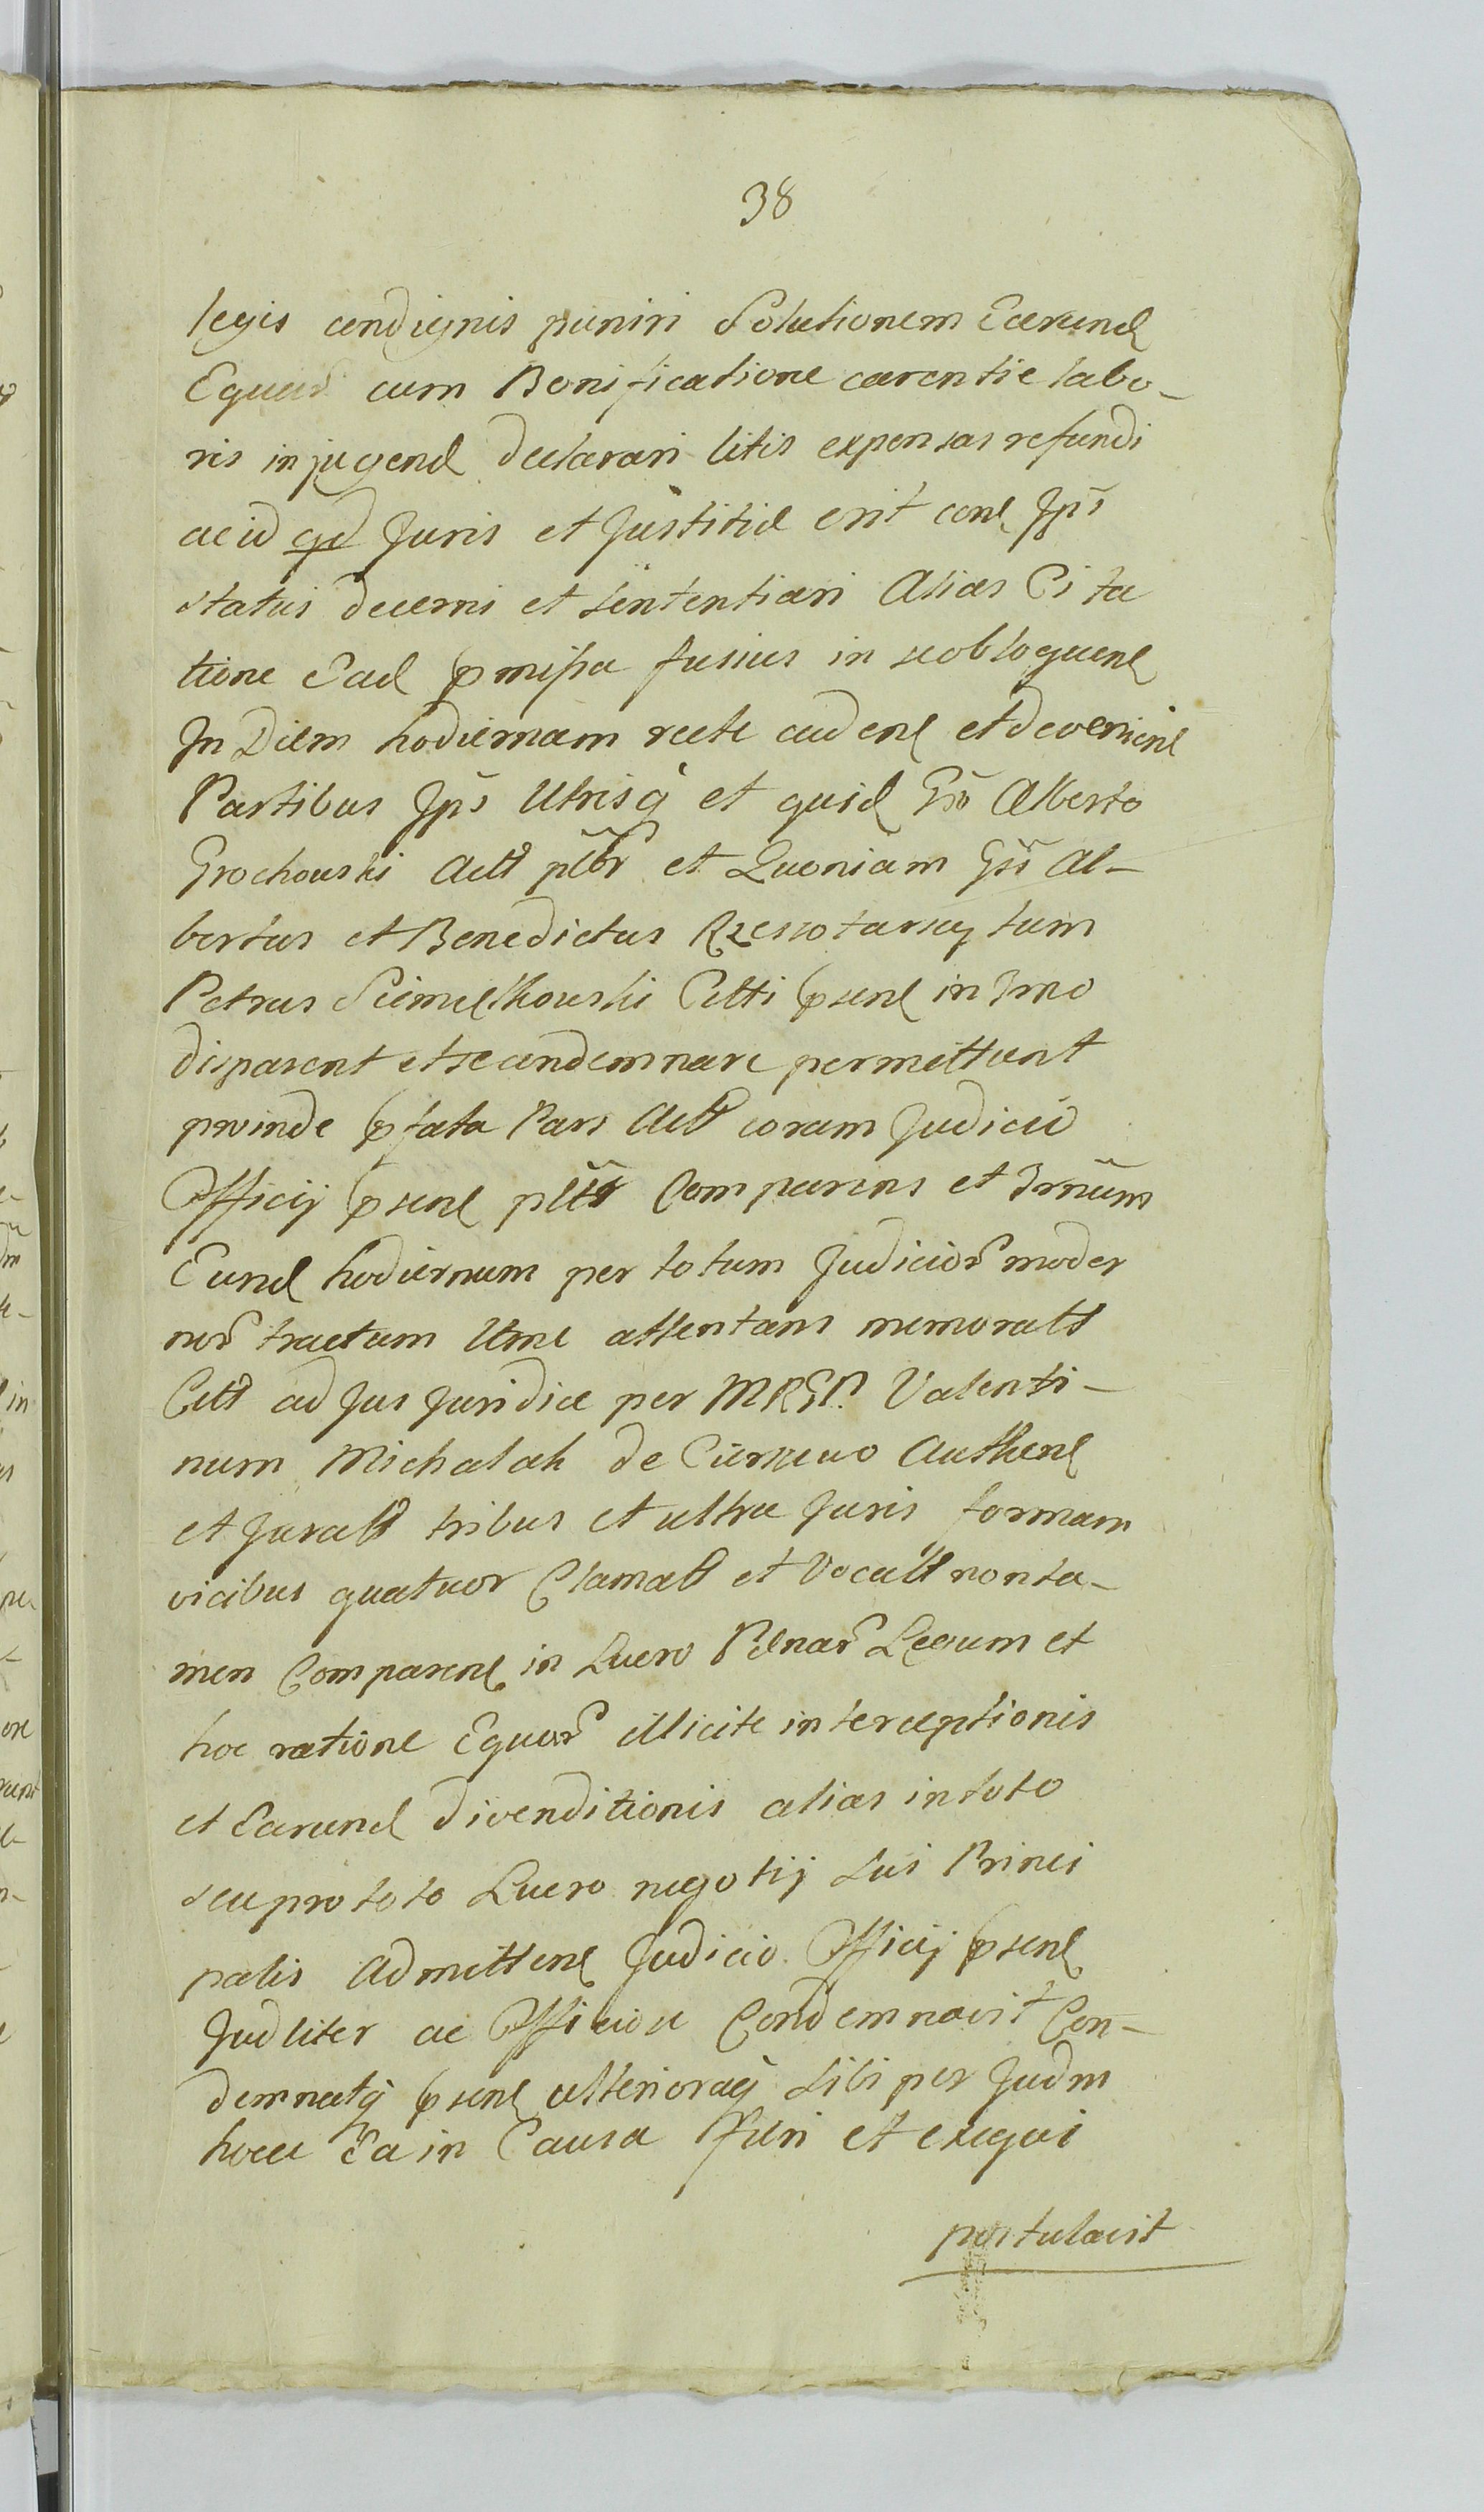 38
legis condignis puniri Solutionem Earund
Equar cum Bonificatione carentie labo-
ris injugend declarari litis expensas refundi
ac id qd Juris et Justitiæ erit cond Jps
status decerni et sententiari Alias Cita
tione Ead pmissa fusius in se obloquend
In Diem hodiernam recte cadend et deveniend
Partibus Jps Utrisq et quid Gso Alberto
Grochowski Actt pltr et Quoniam Gsi Al-
bertus et Benedictus Rzeszotarscy tum
Petrus Siemiethowski Citti psend in Trno
disparent et se condemnare permittunt
proinde pfata Pars Actt coram Judicio
Officij psend pltr Comparens et Trnum
Eund hodiernum per totum Judicior moder
nor tractum Ulme attentans memoratt
Citt ad Jus Juridice per MRGP. Valenti-
num Michalak de Cierszewo Authend
et Juratt tribus et ultra Juris formam
vicibus quatuor Clamatt et Vocatt non ta-
men Comparend in Lucro Pænar Legum et
hoc ratione Equar illicite interceptionis
et Earund divenditionis alias in toto
seu pro toto Lucro negotij sui Princi
palis Admittend Judicio Officij psend
Judliter ac Officiose Condemnavit Con-
demnatq psend ulterioraq sibi per Judm
hocce Ea in Causa fieri et exequi
postulavit